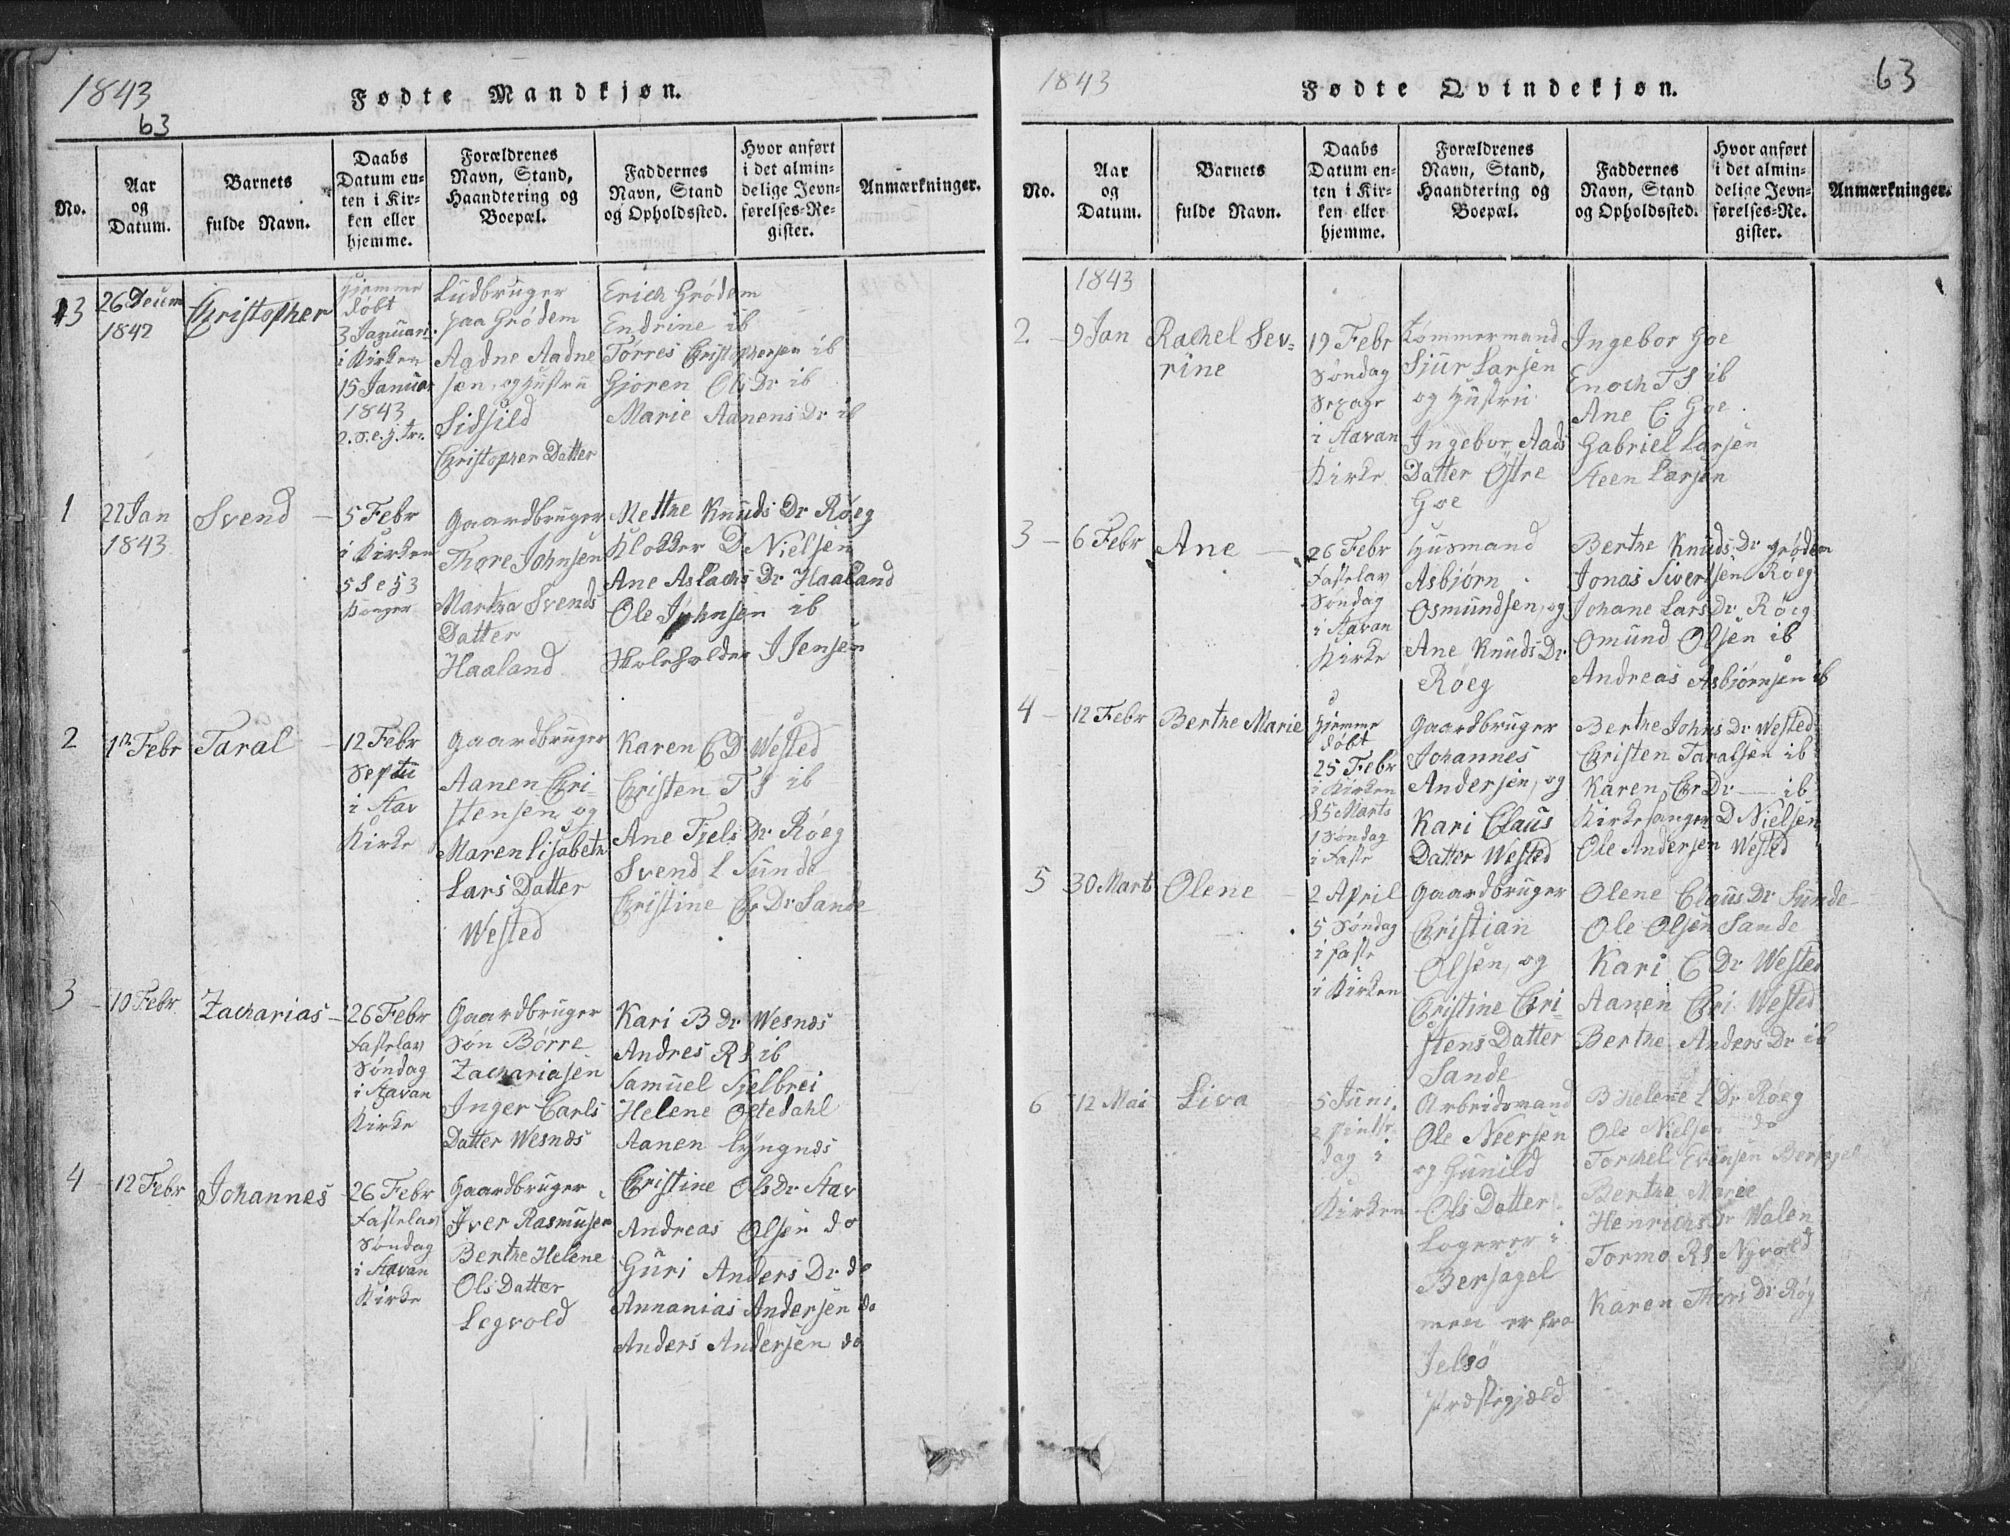 1843
63
Fødte Mandkjøn.
No.
Aar
og
Datum.
Barnets
fulde Navn.
Daabs
Datum en-
ten i Kir-
ken eller
hjemme.
Forældrenes
Navn, Stand,
Haandtering og
Boepæl.
Faddernes
Navn, Stand
og Opholdssted.
Hvor anført
i det almin-
delige Jevn-
førelses-Re-
gister.
Anmærkninger.
13
26 Decem
1842
Christopher
Hjemme
døbt
3 Januar
i Kirken
15 Janua
1843
2. S. e. h. tr.
Ludbruger
paa Grødem
Aadne Aadne
sen, og Hustru
Sidsild
Christopher Datter
Erich Grødem
Endrine ib
Tørres Christophersen ib
Gjoren Ols Dr ib
Marie Aanens Dr ib
1
22 Jan
1843
Svend
5 Febr
i Kirken
5 S e h 3
Konger
Gaardbruger
Thore Johnsen
Martha Svends
Datter
Haaland
Metthe Knuds Dr Røeg
Klokker D Nielsen
Ane Aslachs Dr Haaland
Ole Johnsen ib
Skoleholder J Jensen
2
1te Febr
Taral
12 Febr
Septu
i Aav
Kirke
Gaardbruger
Aanen Chri-
stensen og
Maren Lisabeth
Lars Datter
Wested
Karen C D Wested
Christen T S ib
Ane Tiels Dr Røeg
Svend L Sunde
Christine Chr Dr Sande
3
10 Febr
Zacharias
26 Febr
Fastelav
Søndag
i Aavan
Kirke
Gaardbruger
Søn Børre
Zachariasen
Inger Carls
Datter Wesnæs
Kari B Dr Wesnæs
Andres R S ib
Samuel Selbrei
Helene Østedahl
Aanen Lyngnæs
4
12 Febr
Johannes
26 Febr
Fastelav
Søndag
i Aavan
Kirke
Gaardbruger
Iver Rasmusen
Berthe Helene
Ols Datter
Legvold
Christine Ols Dr Aav
Andreas Olsen do
Guri Anders Dr do
Annanias Andersen do
Anders Andersen do
1843
63
Fødte Qvindekjøn.
No.
Aar
og
Datum.
Barnets
fulde Navn.
Daabs
Datum en-
ten i Kir-
ken eller
hjemme.
Forældrenes
Navn, Stand,
Haandtering og
Boepæl.
Faddernes
Navn, Stand
og Opholdssted.
Hvor anført
i det almin-
delige Jevn-
førelses-Re-
gister.
Anmærkninger.
1843
2.
9 Jan
Rachel Sev-
rine
19 Febr
Søndag
Sexage
i Aavan
Kirke
Tømmermand
Sjur Larsen
og Hustru
Ingebor Aads
Datter Østre
Goe
Ingebor Goe
Enoch T S ib
Ane C. Goe
Gabriel Larsen
Steen Larsen
3
6 Febr
Ane
26 Febr
Fastelav
Søndag
i Aavan
Kirke
Husmand
Asbjørn
Osmundsen, og
Ane Knuds Dr
Røeg
Berthe Knuds Dr Grødem
Jonas Sivertsen Røeg
Johane Lars Dr Røeg
Omund Olsen ib
Andreas Asbjørnsen ib
4
12 Febr
Berthe Marie
Hjemme
døbt
25 Febr
i Kirken
5 Marts
1 Søndag
i Faste
Gaardbruger
Johannes
Andersen, og
Kari Claus
Datter Wested
Berthe Johns Dr Wested
Christen Taralsen ib
Karen Chr Dr ib
Kirkesanger D Nielsen
Ole Andersen Wested
5
30 Mart
Olene
2 April
5 Søndag
i faste
i Kirken
Gaardbruger
Christian
Olsen, og
Christine Chri-
stens Datter
Sande
Olene Claus Dr Sunde
Ole Olsen Sande
Kari C Dr Wested
Aanen Chri Wested
Berthe Anders Dr ib
6
12 Mai
Liva
5 Juni
2 Pintse
dag i
Kirken
Arbeidsmand
Ole Neersen
og Gunild
Ols Datter
Logerer i
Bersagel
men er fra
Jelsø
Præstegjæld
B Helene L Dr Røeg
Ole Nielsen do
Torchel Evensen Bersagel
Berthe Marie
Henrichs Dr Walen
Tormo R S Nyvold
Karen Thors Dr Røg